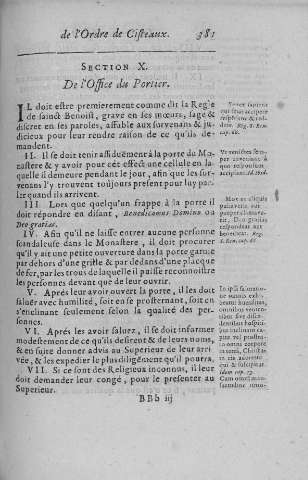 de l'Ordre de Cisteaux. 381
SECTION X.
De l'Office du Portier.
IL doit estre premierement comme dit la Regle
de sainct Benoist, grave en ses mœurs, sage &
discret en ses paroles, affable aux survenans & ju-
dicieux pour leur rendre raison de ce qu'ils de-
mandent.
II. Il se doit tenir assiduëment à la porte du Mo-
nastere & y avoir pour cét effect une cellule en la-
quelle il demeure pendant le jour, afin que les sur-
venans l'y treuvent toujours présent pour luy par-
ler quand ils arrivent.
III. Lors que quelqu'un frappe à la porte il
doit répondre en disant, Benedicamus Domino ou
Deo gratias.
IV. Afin qu'il ne laisse entrer aucune personne
scandaleuse dans le Monastere, il doit procurer
qu'il y ait une petite ouverture dans la porte garnie
par dehors d'une grille & par dedans d'une placque
de fer, par les trous de laquelle il puisse reconnoistre
les personnes devant que de leur ouvrir.
V. Aprés leur avoir ouvert la porte, il les doit
saluër avec humilité, soit en se prosternant, soit en
s'enclinant seulement selon la qualité des per-
sonnes.
VI. Aprés les avoir saluez, il se doit informer
modestement de ce qu'ils desirent & de leurs noms,
& en suite donner advis au Superieur de leur arri-
vée, & les expedier le plus diligement qu'il pourra.
VII. Si ce sont des Religieux inconnus, il leur
doit demander leur congé, pour le presenter au
Superieur.
BBb iij
responsum &
Reg. S. Ben.
cap. 66.
Ut venientes sem-
per
accipiant. Id. ibid.
Mox ut aliquis
pulsaverit, aut
pauper clamave-
rit, Deo gratias
Reg.
S. Ben. cap. 66.
In ipsa salutatio-
omnibus venien-
tibus sive disce-
dentibus hospi-
inclinato
capite
vel prostra-
to omni corpore
in terra, Christus
in eis adoretur
qui & suscipitur.